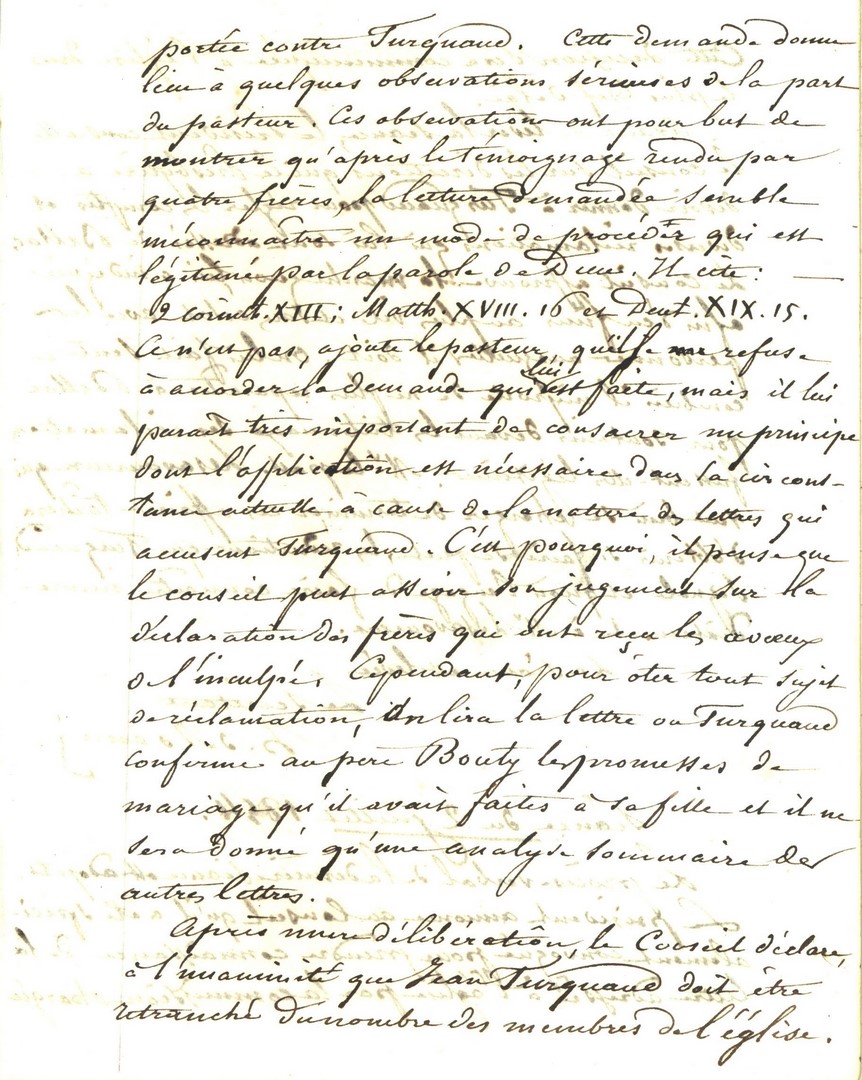 portée contre Turquand. Cette demande donne
lieu à quelques observations sérieuses de la part
du pasteur. Ces observations ont pour but de
montrer qu'après le témoignage rendu par
quatre frères, la lecture demandée semble
méconnaître un mode de procéder qui est
légitimé par la parole de Dieu. Il cite :
2 Corinth. XIII; Matth. XVIII. 16 et Deut. XIX. 15.
Ce n'est pas, ajoute le pasteur, qu'il se refuse
à accorder la demande qui lui est faite, mais il lui
parait très important de consacrer un principe
dont l'application est nécessaire dans la circons-
tance actuelle à cause de la nature des lettres qui
accusent Turquand. C'est pourquoi, il pense que
le conseil peut asseoir son jugement sur la
déclaration des frères qui ont reçu les aveux
de l'inculpé. Cependant, pour ôter tout sujet
de réclamation, on lira la lettre où Turquand
confirme au père Bouty les promesses de
mariage qu'il avait faites à sa fille et il ne
sera donné qu'une analyse sommaire des
autres lettres.
Après mure délibération, le Conseil déclare,
à l'unanimité que Jean Turquand doit être
retranché du nombre des membres de l'église.